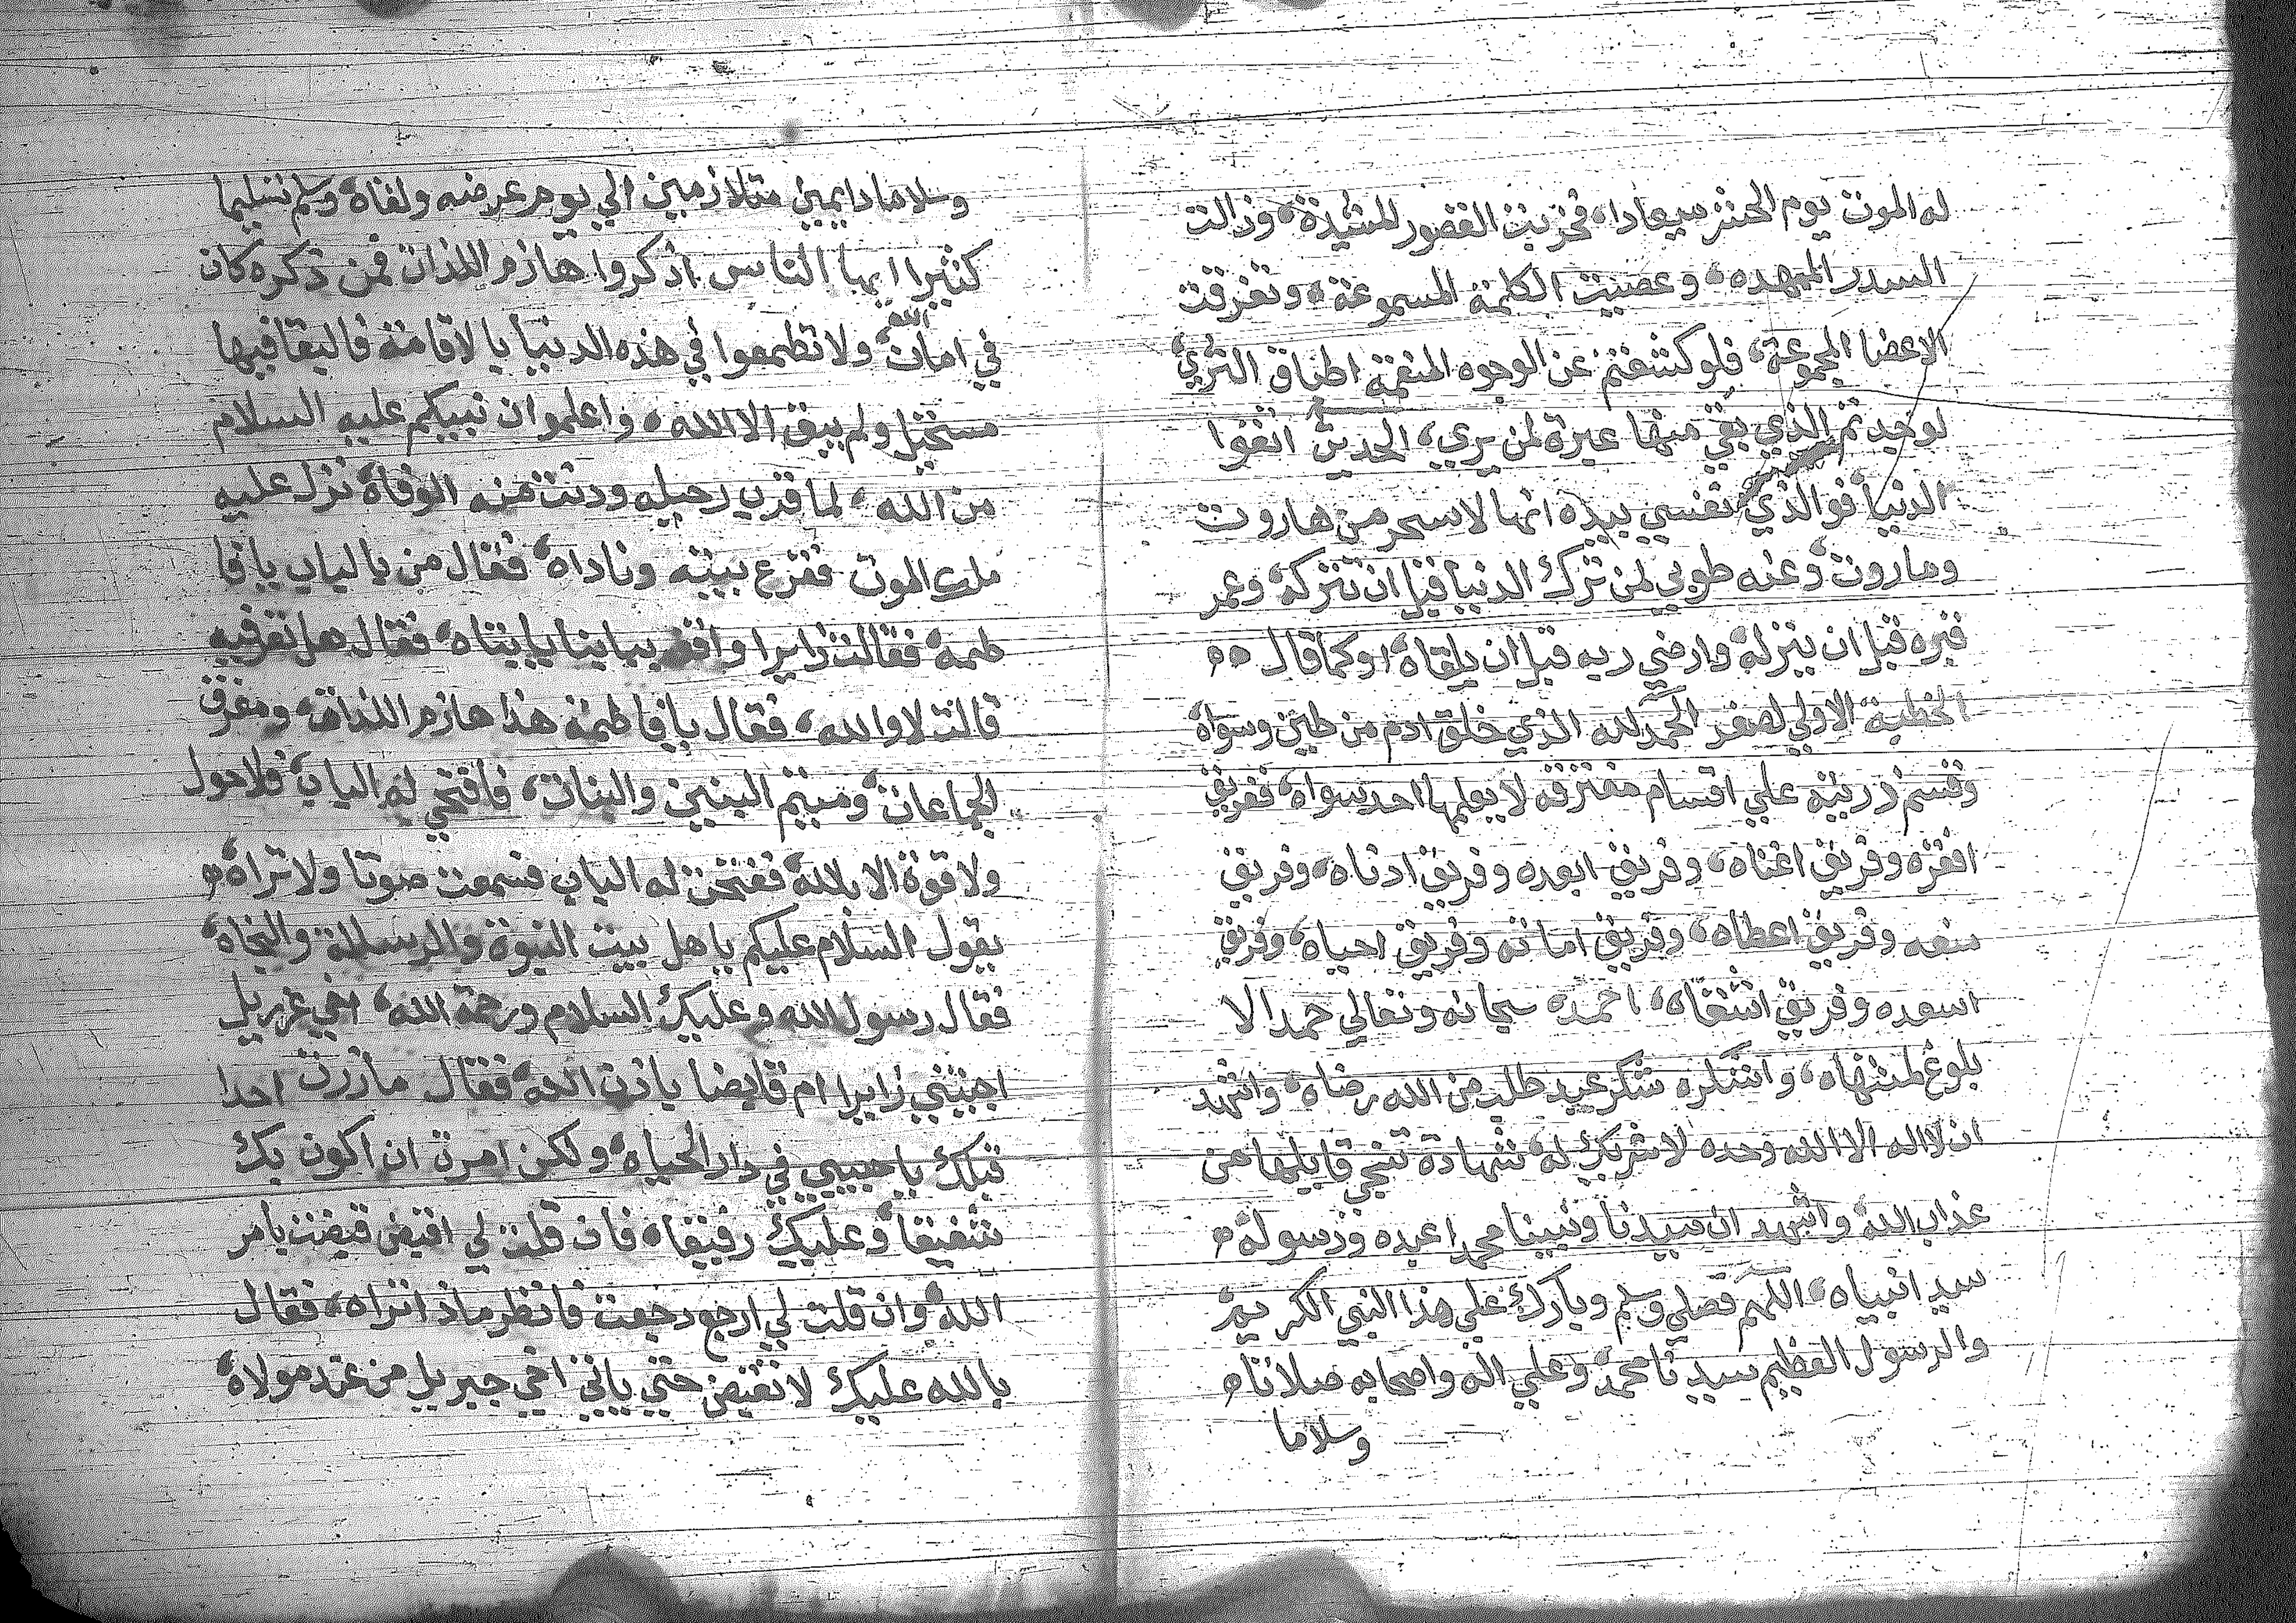 له الموت يوم الحشر ميعادا، فخربت القصور المشيدة، وزالت
السدر الممهده، وعصيت الكلمة المسموعة، وتفرقت
الاعضا المجموعة، فلو كشفتم عن الوجوه المنعمة اطباق الثري،
لوجدتم الذي بقي منها عبرة لمن يري، الحديث اتقوا
الدنيا فوالذي نفسي بيده انها لاسحر من هاروت
وماروت، وعنه طوبي لمن ترك الدنيا قبل ان تتركه، وعمر
قبره قبل ان ينزله، وارضي ربه قبل ان يلقاه، اوكما قال
الخطبة الاولي لصفر الحمد لله الذي خلق ادم من طين وسواه،
وقسم ذريته علي اقسام مفترقه لا يعلمها احد سواه، ففريق
افقره وفريق اغناه، وفريق ابعده وفريق ادناه، وفريق
منعه وفريق اعطاه، وفريق اماته وفريق احياه، وفريق
اسعده وفريق اشقاه، احمده سبحانه وتعالي حمدا لا
بلوغ لمنتهاه، واشكره شكر عبد طلب من الله رضاه، واشهد
ان لا اله الا الله وحده لا شريك له، شهادة تنجي قايلها من
عذاب الله، واشهد ان سيدنا ونبينا محمدا عبده ورسوله،
سيد انبياه، اللهم فصلي وسلم وبارك علي هذا النبي الكريم،
والرسول العظيم سيدنا محمد، وعلي اله واصحابه صلاتا،
وسلاما
وسلاما دايمين متلازمين الي يوم عرضه ولقاه، وسلم تسليما
كثيرا ايها الناس اذكروا هازم اللذات فمن ذكره كان
في امان الله، ولا تطمعوا في هذه الدنيا بالاقامة فالبقا فيها
مستحيل ولم يبق الا الله، واعلموا ان نبيكم عليه السلام
من الله، لما قرب رحيله ودنت منه الوفاة، نزل عليه
ملك الموت فقرع بيته وناداه، فقال من بالباب يا فا
طمة، فقالت زايرا واقف ببابنا يابتاه، فقال هل تعرفيه
قالت لا والله، فقال يا فاطمة هذا هازم اللذات، ومفرق
الجماعات، وميتم البنين والبنات، فافتحي له الباب، فلا حول
ولا قوة الا بالله، ففتحت له الباب فسمعت صوتا ولا تراه،
يقول السلام عليكم ياهل بيت النبوة والرسالة والنجاه،
فقال رسول الله وعليك السلام ورحمة الله، اخي عزريل
اجيتني زايرا ام قابضا باذن الله، فقال مازرت احدا
قبلك يا حبيبي في دار الحياه، ولكن امرت ان اكون بك
شفيقا، وعليك رفيقا، فان قلت لي اقبض قبضت بامر
الله، وان قلت لي ارجع رجعت فانظر ماذا تراه، فقال
بالله عليك لا تقبض حتي ياتي اخي جبريل من عند مولاه،